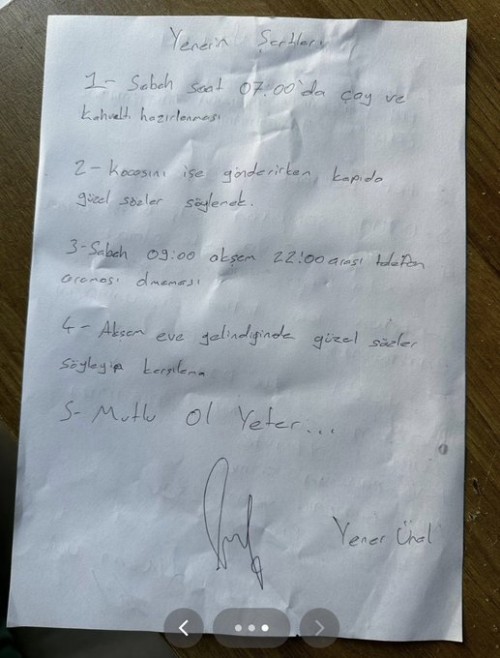 Yenerin Şartları
1- Sabah saat 07.00'da çay ve
kahvaltı hazırlanması
2- Kocasını işe gönderirken kapıda
güzel sözler söylemek.
3- Sabah 09:00 akşam 22:00 arası telefon
araması olmaması
4- Akşam eve gelindiğinde güzel sözler
söyleyip karşılama
5- Mutlu Ol Yeter...
Yener Ünal